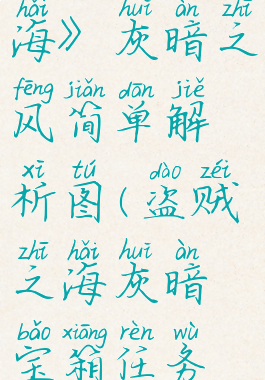 hǎi huī àn zhī
海》 灰暗之
fēng jiǎn dān jiě
风简单解
xī tú dào zéi
析图(盗贼
zhī hǎi huī àn
之海灰暗
bǎo xiāng rèn wù
宝箱任务